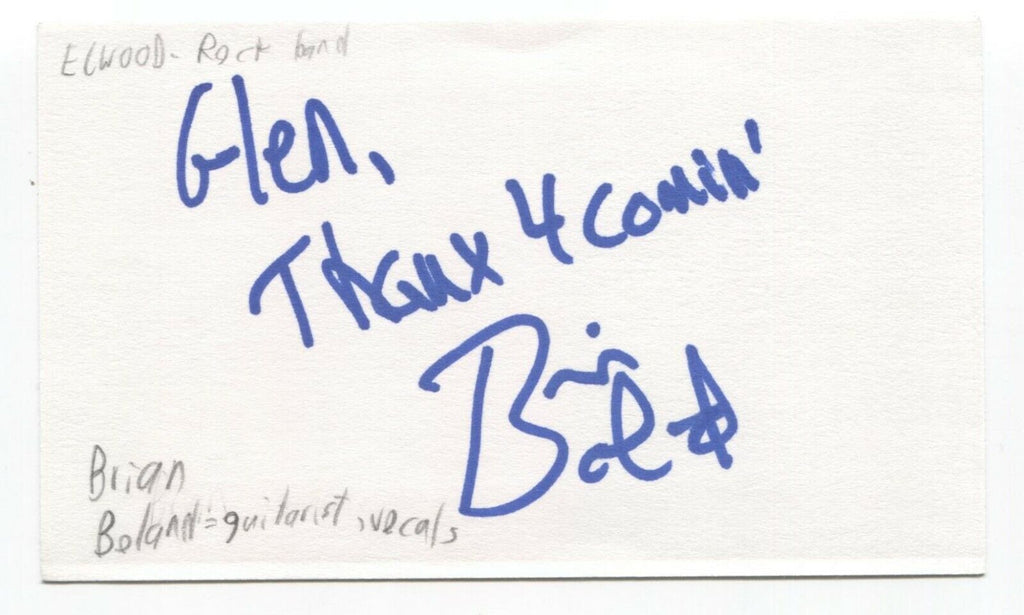 ELWOOD - Rock band
Glen,
Thanx 4 comin'
Brian
Boland
Brian
Boland = guitarist, vocals